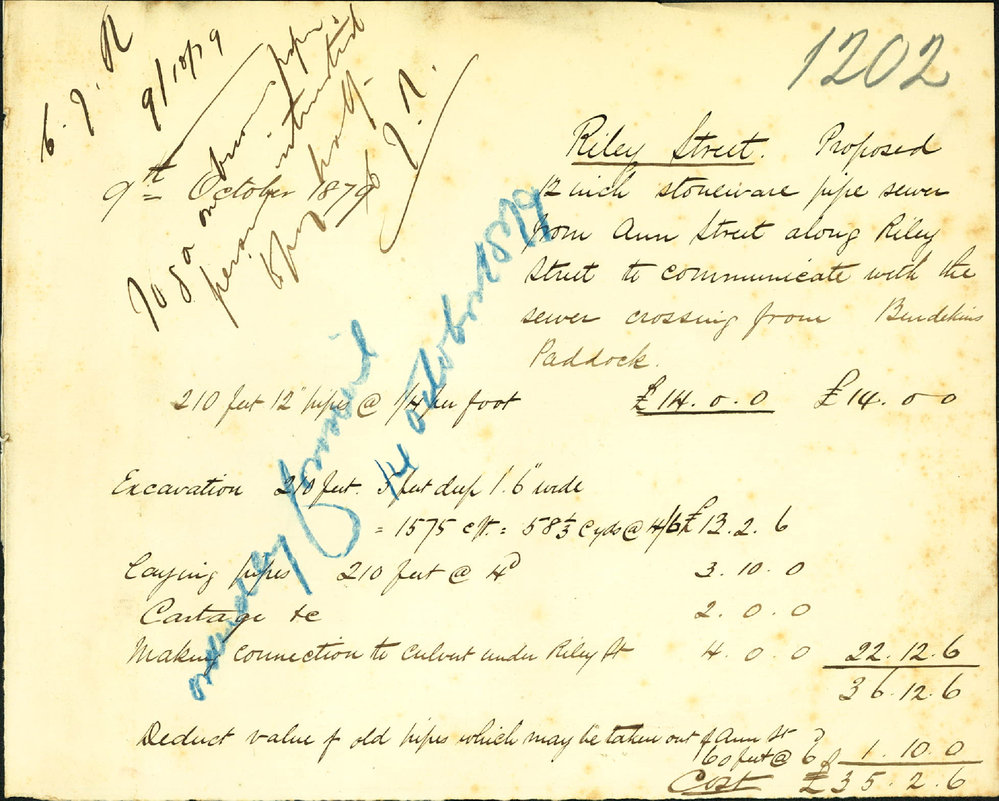 1202
6. J. R
9/10/79
9th October 1879
To go on
pipe
person instructed
half.
J. R.
Riley Street. Proposed
12 inch stoneware pipe sewer
from Ann Street along Riley
Street to communicate with the
sewer crossing from
Paddock.
14 October 1879
210 feet 12" pipes @ 1/4 per foot £14. 0. 0 £14. 0 0
Excavation 210 feet. 5 feet deep 1.6" wide
= 1575 c ft. = 58⅓ c yds @ 4/6 £13. 2. 6
Laying pipes 210 feet @ 4d 3. 10. 0
Cartage &c 2. 0. 0
Making connection to culvert under Riley St 4. 0. 0 22. 12. 6
36. 12. 6
Deduct value of old pipes which may be taken out of Ann St
60 feet @ 6d £ 1. 10. 0
Cost £35. 2. 6